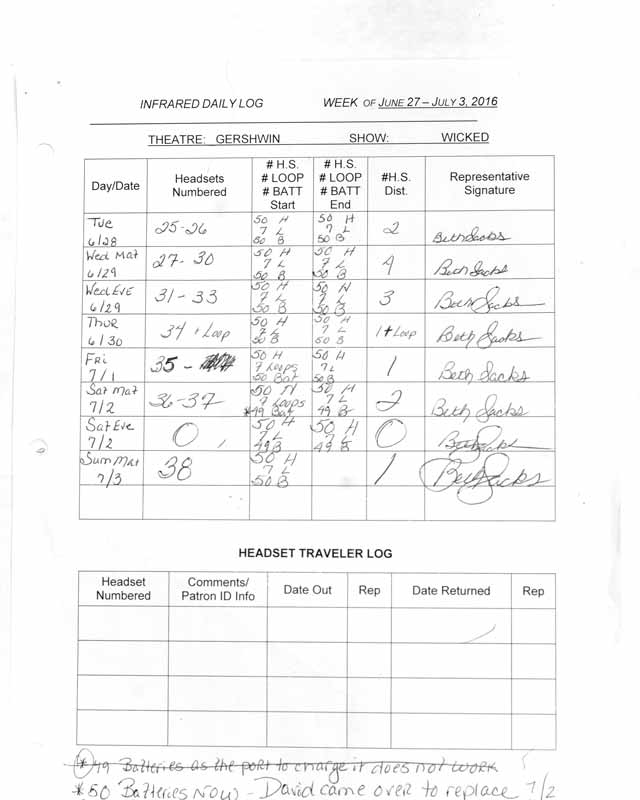 INFRARED DAILY LOG WEEK OF JUNE 27 – JULY 3, 2016
THEATRE: GERSHWIN SHOW: WICKED
Day/Date Headsets Numbered # H.S. # LOOP # BATT Start # H.S. # LOOP # BATT End #H.S. Dist. Representative Signature
Tue 6/28 25-26 50 H 7 L 50 B 50 H 7 L 50 B 2 Beth Sacks
Wed Mat 6/29 27-30 50 H 7 L 50 B 50 H 7 L 50 B 4 Beth Sacks
Wed EVE 6/29 31-33 50 H 7 L 50 B 50 H 7 L 50 B 3 Beth Sacks
THUR 6/30 34 + Loop 50 H 7 L 50 B 50 H 7 L 50 B 1 + Loop Beth Sacks
Fri 7/1 35 - 50 H 7 Loops 50 Bat 50 H 7 L 50 B 1 Beth Sacks
Sat Mat 7/2 36-37 50 H 7 Loops *49 Bat 50 H 7 L 49 B 2 Beth Sacks
Sat Eve 7/2 0 50 H 7 L 49 B 50 H 7 L 49 B 0 Beth Sacks
Sun Mat 7/3 38 50 H 7 L 50 B 1 Beth Sacks
HEADSET TRAVELER LOG
Headset Numbered Comments/ Patron ID Info Date Out Rep Date Returned Rep
*49 Batteries as the port to charge it does not work
*50 Batteries Now - David came over to replace 7/2